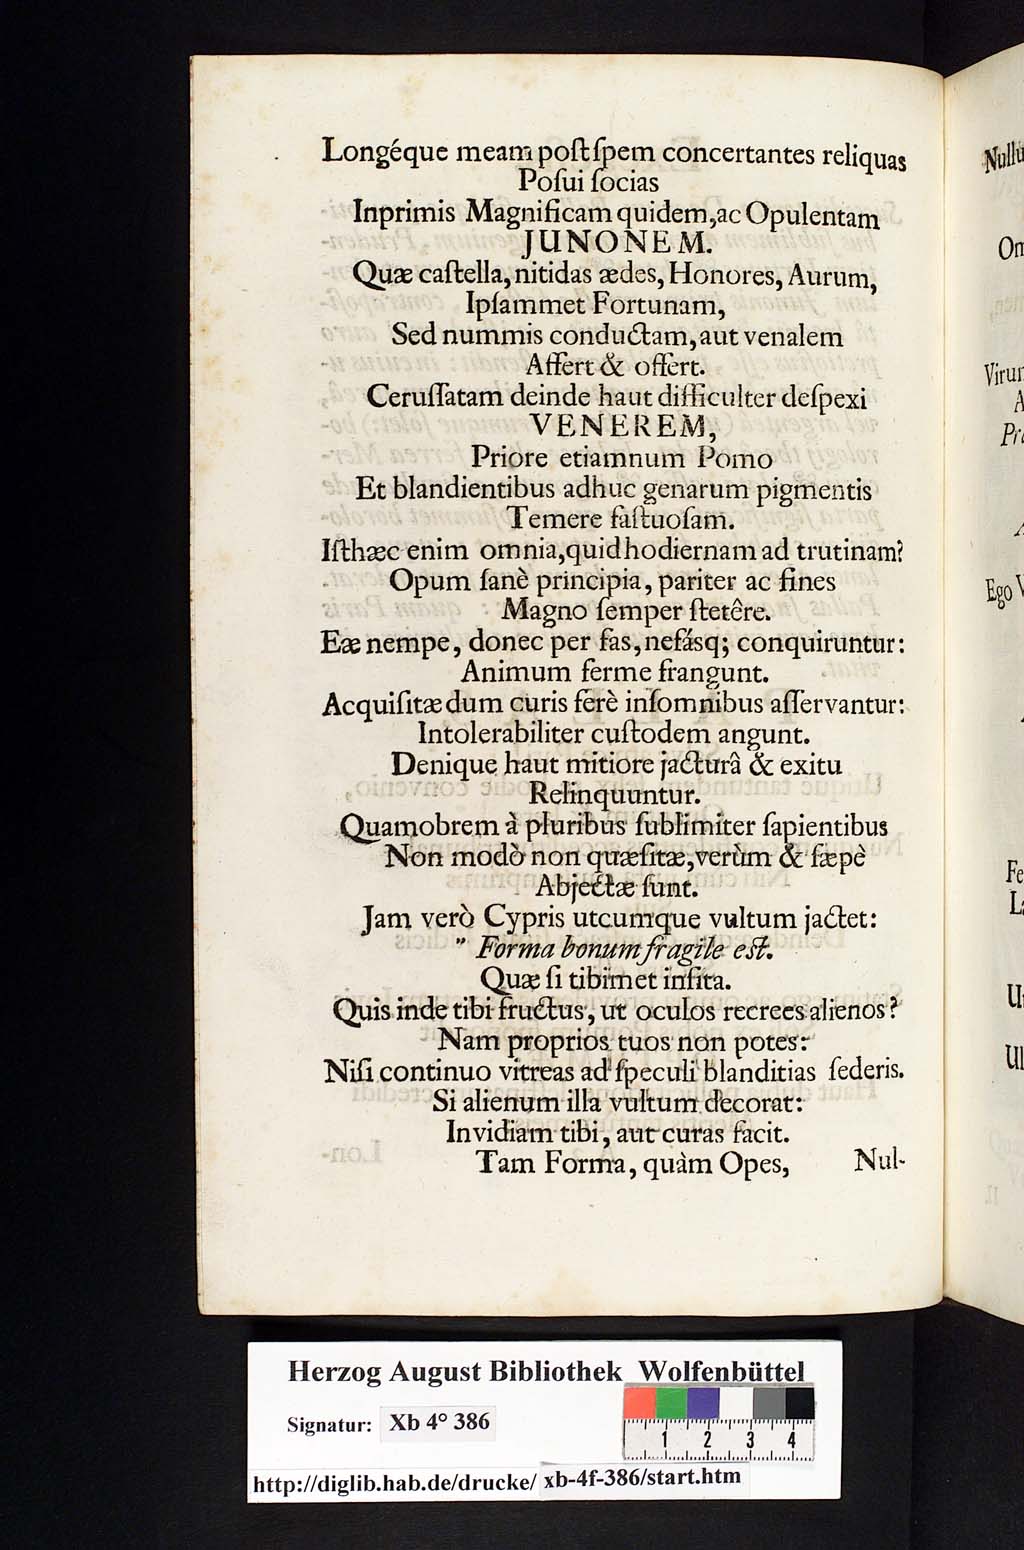 Longéque meam poſt ſpem concertantes reliquas
Poſui ſocias
Inprimis Magnificam quidem, ac Opulentam
JUNONEM.
Quæ caſtella, nitidas ædes, Honores, Aurum,
Ipſammet Fortunam,
Sed nummis conductam, aut venalem
Affert & offert.
Ceruſſatam deinde haut difficulter deſpexi
VENEREM,
Priore etiamnum Pomo
Et blandientibus adhuc genarum pigmentis
Temere faſtuoſam.
Iſthæc enim omnia, quid hodiernam ad trutinam?
Opum ſanè principia, pariter ac fines
Magno ſemper ſtetêre.
Eæ nempe, donec per fas, nefásq; conquiruntur:
Animum ferme frangunt.
Acquiſitæ dum curis ferè inſomnibus aſſervantur:
Intolerabiliter cuſtodem angunt.
Denique haut mitiore jacturâ & exitu
Relinquuntur.
Quamobrem à pluribus ſublimiter ſapientibus
Non modò non quæſitæ, verùm & ſæpè
Abjectæ ſunt.
Jam verò Cypris utcumque vultum jactet:
" Forma bonum fragile eſt.
Quæ ſi tibimet inſita.
Quis inde tibi fructus, ut oculos recrees alienos?
Nam proprios tuos non potes:
Niſi continuo vitreas ad ſpeculi blanditias ſederis.
Si alienum illa vultum decorat:
Invidiam tibi, aut curas facit.
Tam Forma, quàm Opes,
Nul-
Om
Ego
Herzog August Bibliothek Wolfenbüttel
Signatur: Xb 4° 386
1 2 3 4
http://diglib.hab.de/drucke/ xb-4f-386/start.htm